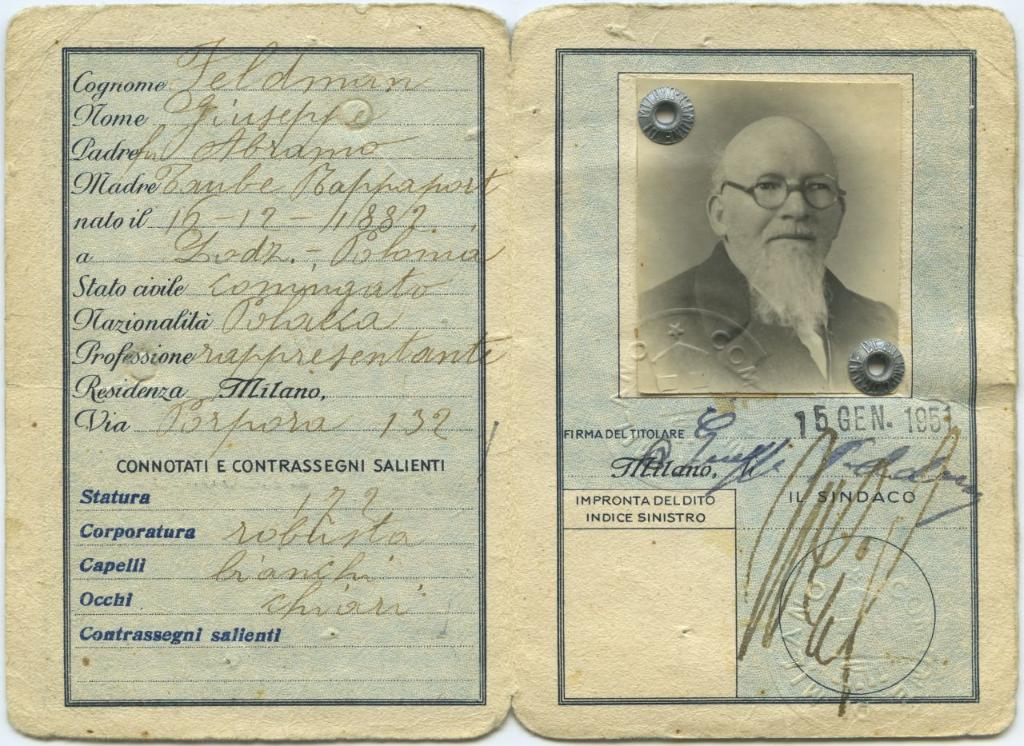 Cognome Feldman
Nome Giuseppe
Padre fu Abramo
Madre Taube Rappaport
nato il 16-12-1882
a Lodz. - Polonia
Stato civile coniugato
Nazionalità Polacca
Professione rappresentante
Residenza Milano,
Via Porpora 132
CONNOTATI E CONTRASSEGNI SALIENTI
Statura 172
Corporatura robusta
Capelli bianchi
Occhi chiari
Contrassegni salienti
COM
FIRMA DEL TITOLARE
15 GEN. 1951
Milano, li
IMPRONTA DEL DITO
INDICE SINISTRO
IL SINDACO